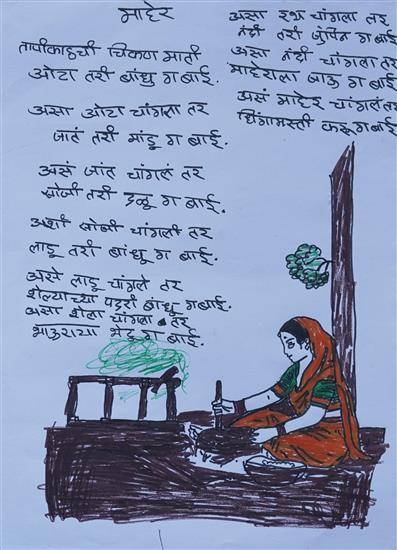 माहेर
तापीकाठची चिकण माती
ओटा तरी बांधु ग बाई.
असा ओटा चांगला तर
जातं तरी मांडू ग बाई.
असं जांत चांगलं तर
सोजी तरी दळू ग बाई.
अशी सोजी चांगली तर
लाडू तरी बांधू ग बाई.
असे लाडू चांगले तर
शेल्याच्या पदरी बांधू ग बाई.
असा शेला चांगला तर
भाऊराया भेटू ग बाई.
असा रथ चांगला तर
नंदी तरी जुंपिन ग बाई
असा नंदी चांगला तर
माहेराला जाऊ ग बाई
असं माहेर चांगलं तर
धिंगामस्ती करू ग बाई.